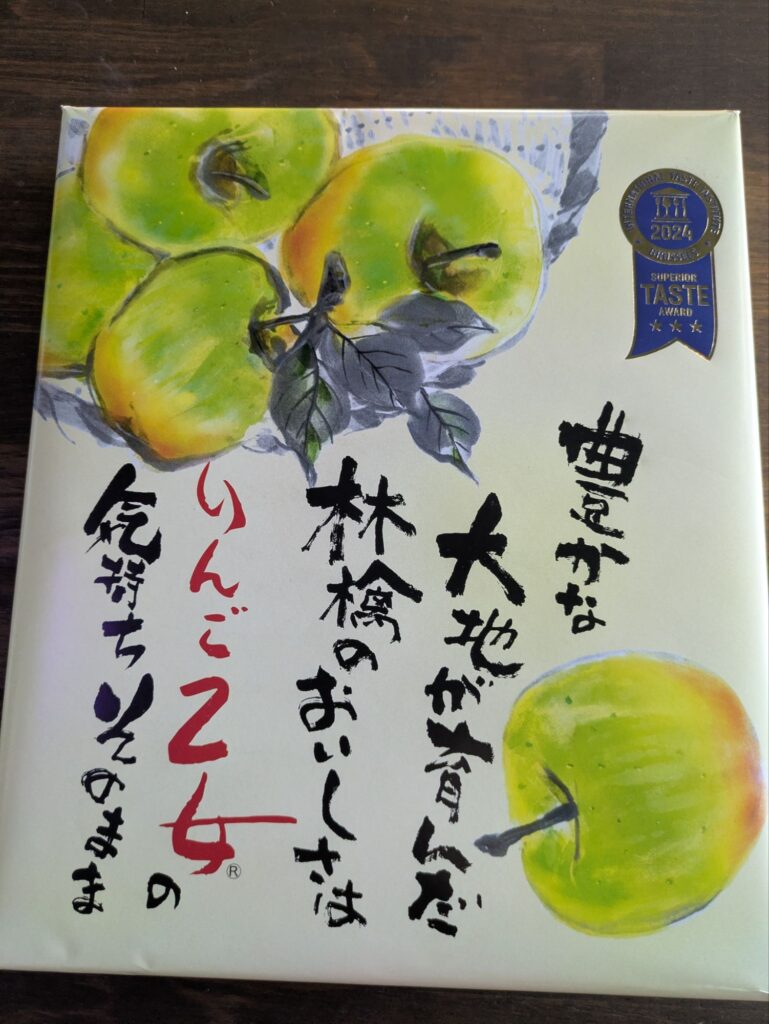 豊かな
大地が育んだ
林檎のおいしさは
りんご乙女®の
気持ちそのまま
INTERNATIONAL TASTE INSTITUTE
2024
BRUSSELS
SUPERIOR
TASTE
AWARD